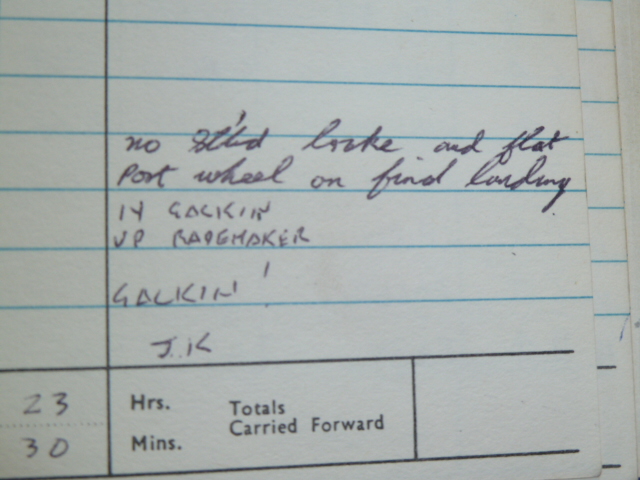 no St'bd brake and flat
Port wheel on final landing
14 GALKIN
UP RADEMAKER
GALKIN !
J.K
23 Hrs. Totals
Carried Forward
30 Mins.